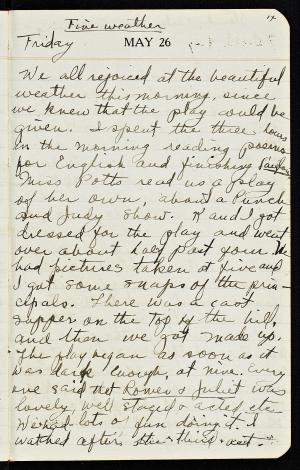 Fine weather
Friday MAY 26
We all rejoiced at the beautiful
weather this morning, since
we knew that the play could be
given. I spent the three hours
in the morning reading poems
for English and finishing
Miss Potts read us a play
of her own, about a Punch
and Judy show. K and I got
dressed for the play and went
over about half past four. We
had pictures taken at five and
I got some snaps of the prin-
cipals. There was a cast
supper on the top of the hill,
and then we got made up.
The play began as soon as it
was dark enough, at nine. Every
one said that Romeo & Juliet was
lovely, well staged & acted etc
We had lots of fun doing it. I
watched after the third act.